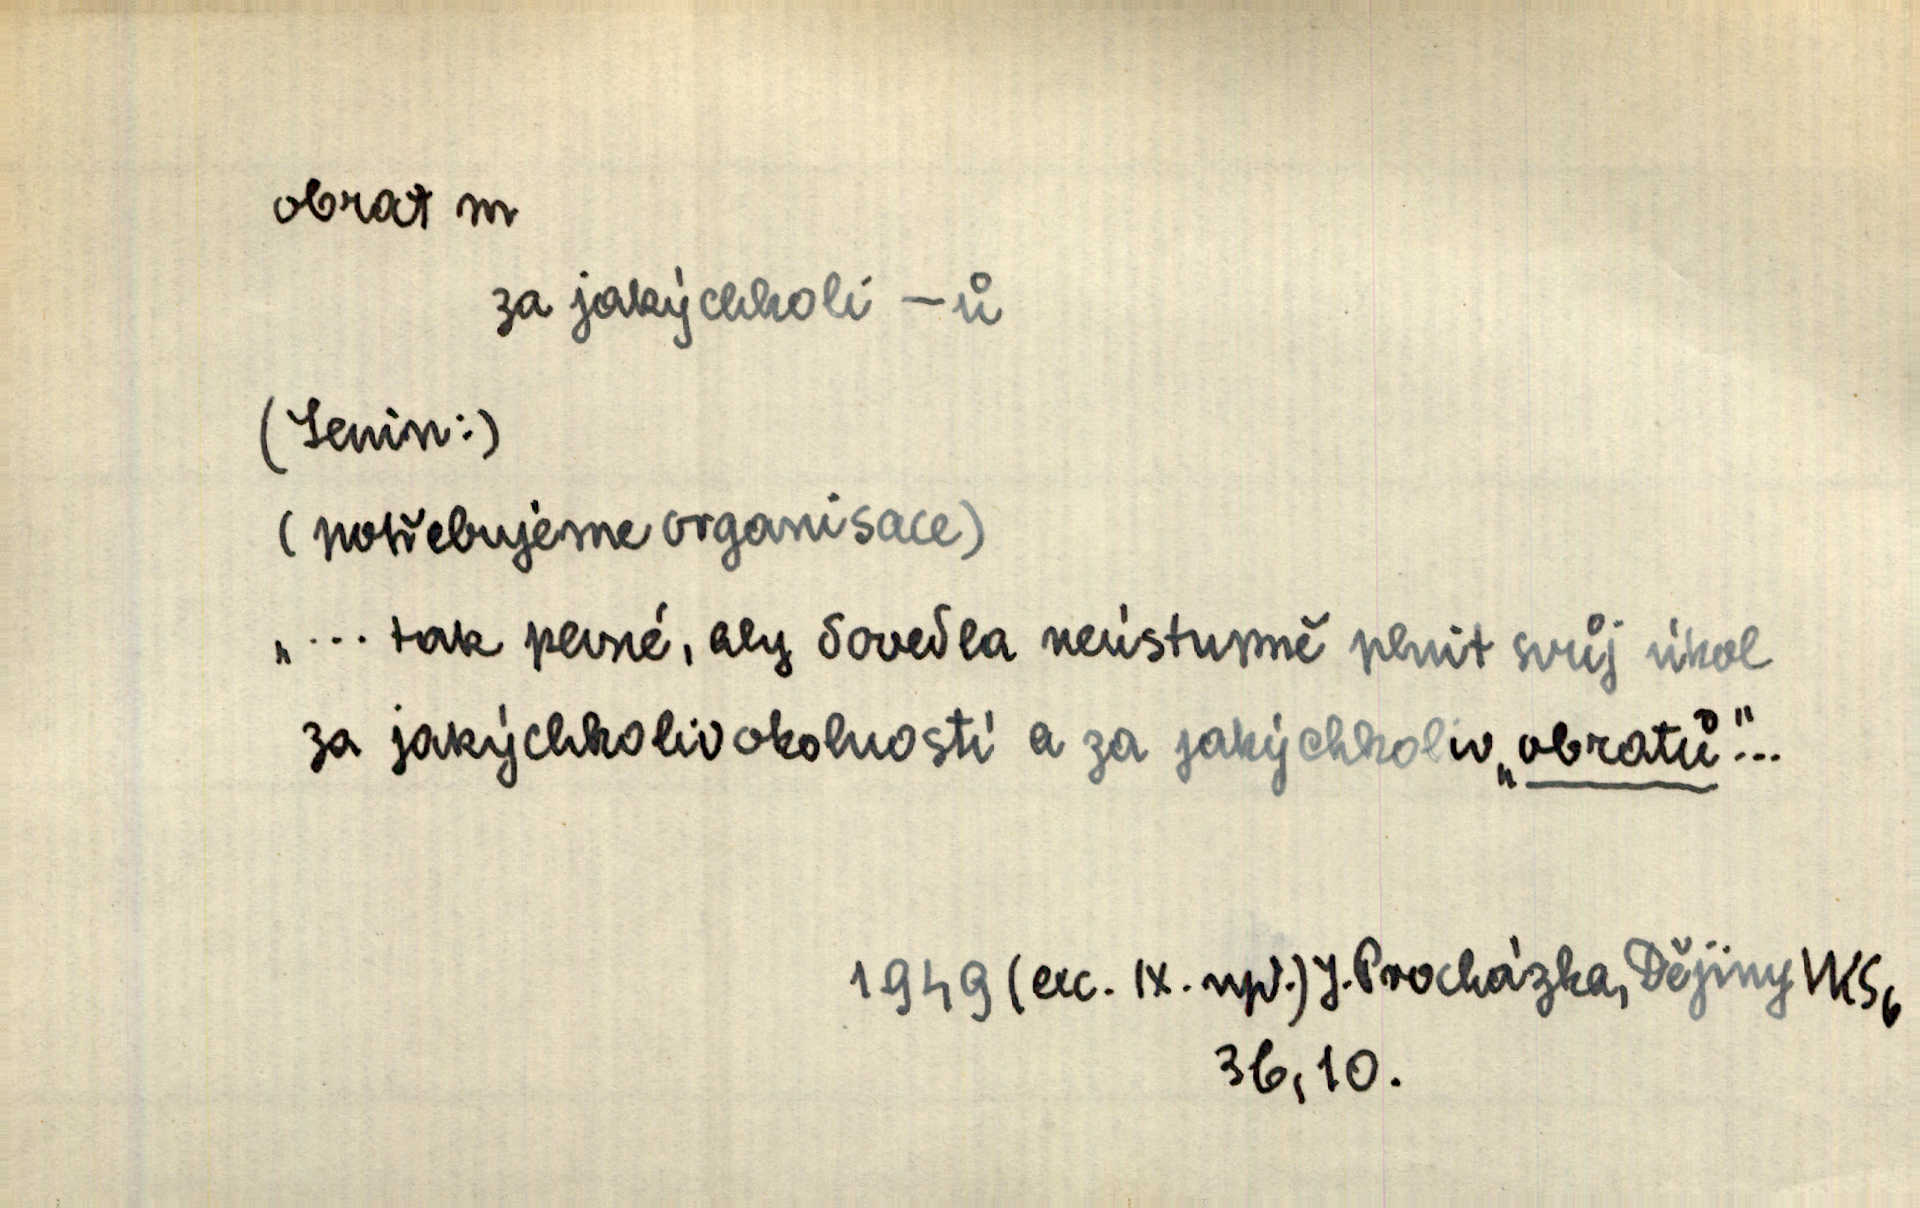 obrat m
za jakýchkoli – ů
(Lenin:)
(potřebujeme organisace)
„... tak pevné, aby dovedla neústupně plnit svůj úkol
za jakýchkoliv okolností a za jakýchkoliv „obratů“...
1949 (exc. IX. np.) J. Procházka, Dějiny VKSb
36, 10.